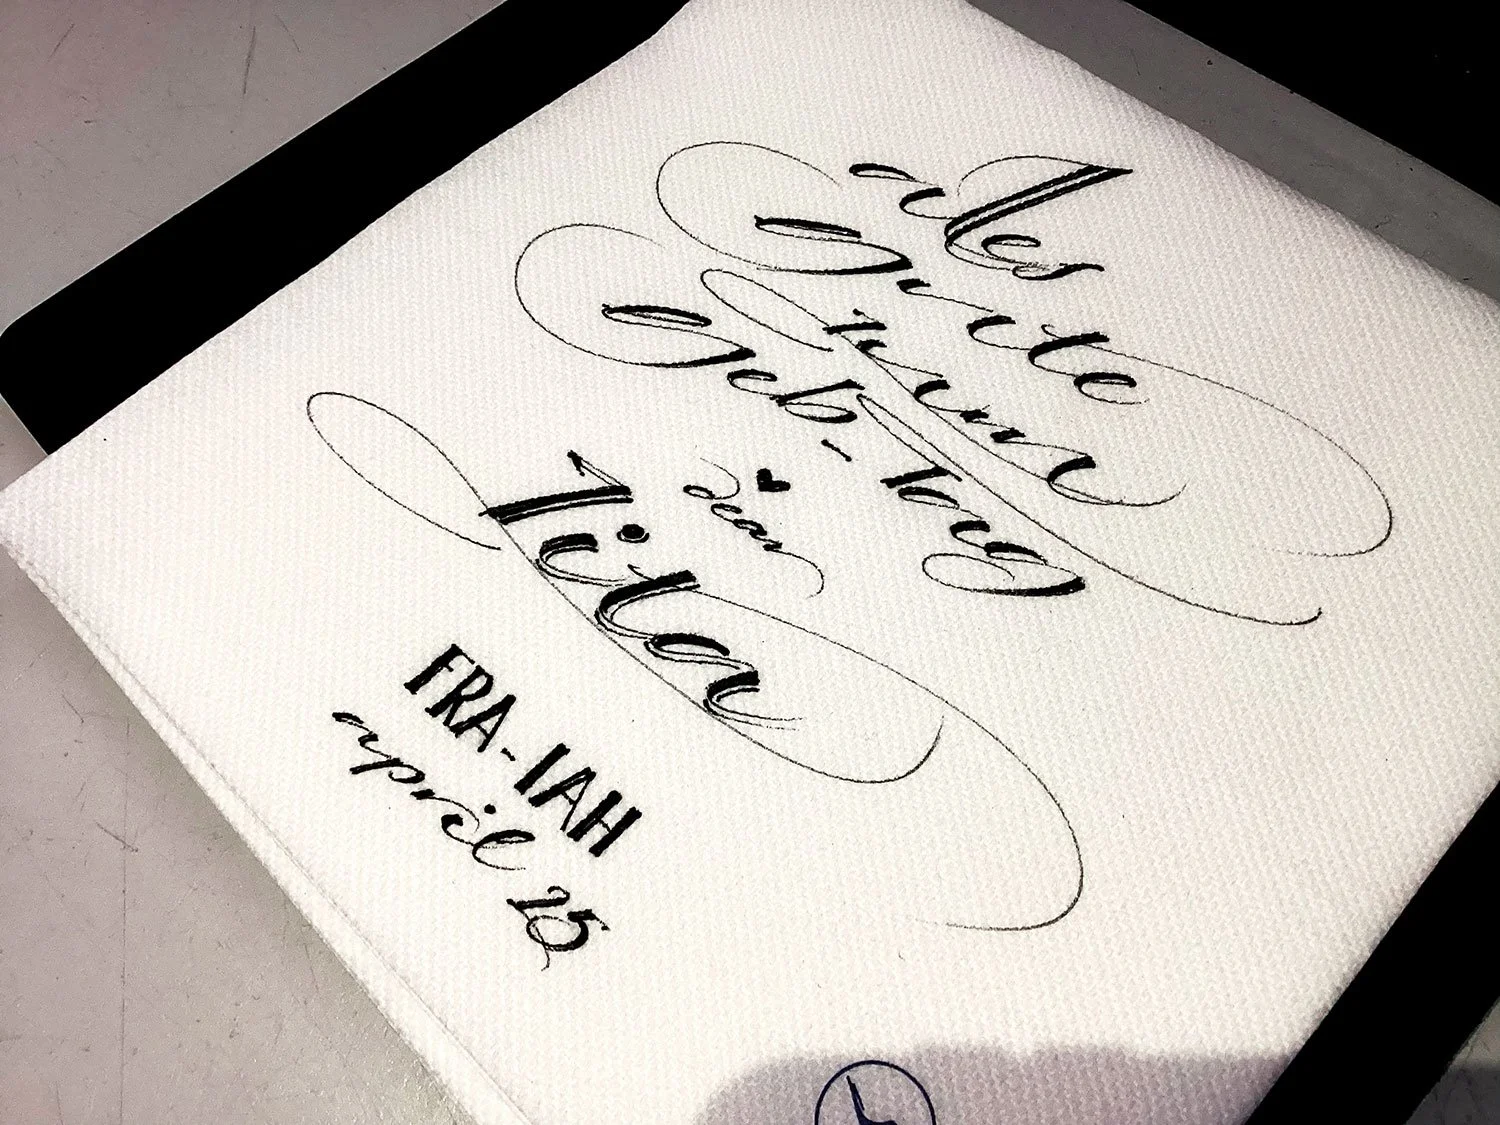 alles
Gute
zum
Geb-tag
dear
Jita
FRA-IAH
april 25